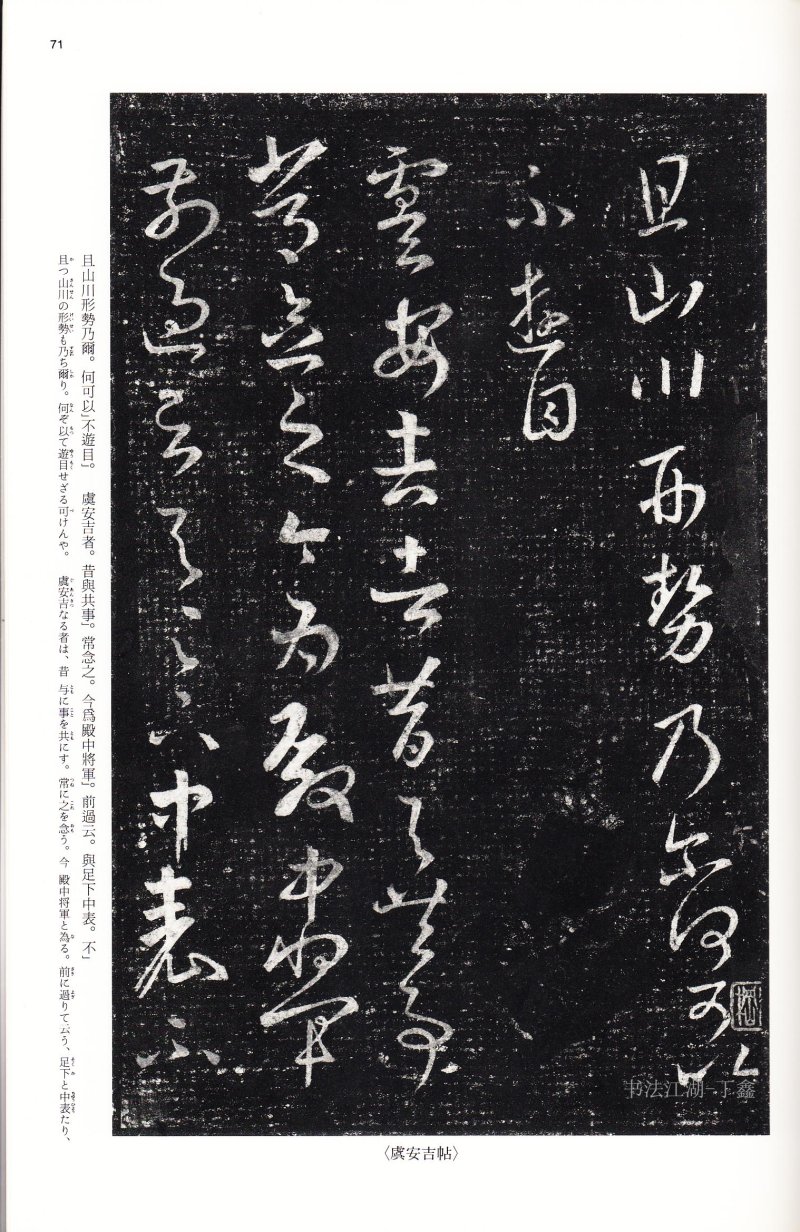 71
且山川形勢乃尓何可以
不遊目
虞安吉者昔与共事
常念之今為殿中将軍
前過云与足下中表不
书法江湖-丁鑫
〈虞安吉帖〉
且山川形勢乃爾。何可以」不遊目」　虞安吉者。昔與共事」。常念之。今爲殿中將軍」。前過云。與足下中表。不」
且つ山川の形勢も乃ち爾り。何ぞ以て遊目せざる可けんや。　虞安吉なる者は、昔 与に事を共にす。常に之を念う。今 殿中将軍と為る。前に過りて云う、足下と中表たり、